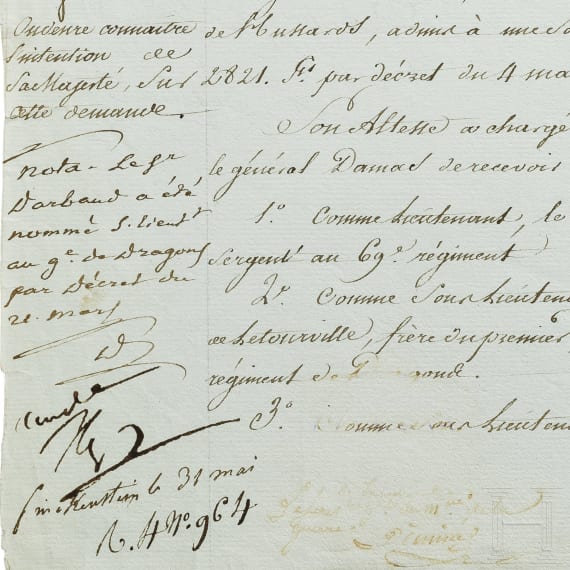 On désire connaitre
l'intention de
Sa Majesté, Sur
cette demande.
nota - Le Sr
Darbaud a été
nommé S. lieut
au 9e. de Dragons
par Décret du
21. mars
de hussards, admis à une So
2821. Frs par décret du 4 ma
Son Altesse a chargé
le général Damas de recevoir
1o Comme Lieutenant, le
Sergent au 69e. régiment
2o. Comme Sous Lieuten
de Letourville, frère du premier,
régiment de
3o Comme Sous Lieuten
finckenstein le 31 mai
No. 964